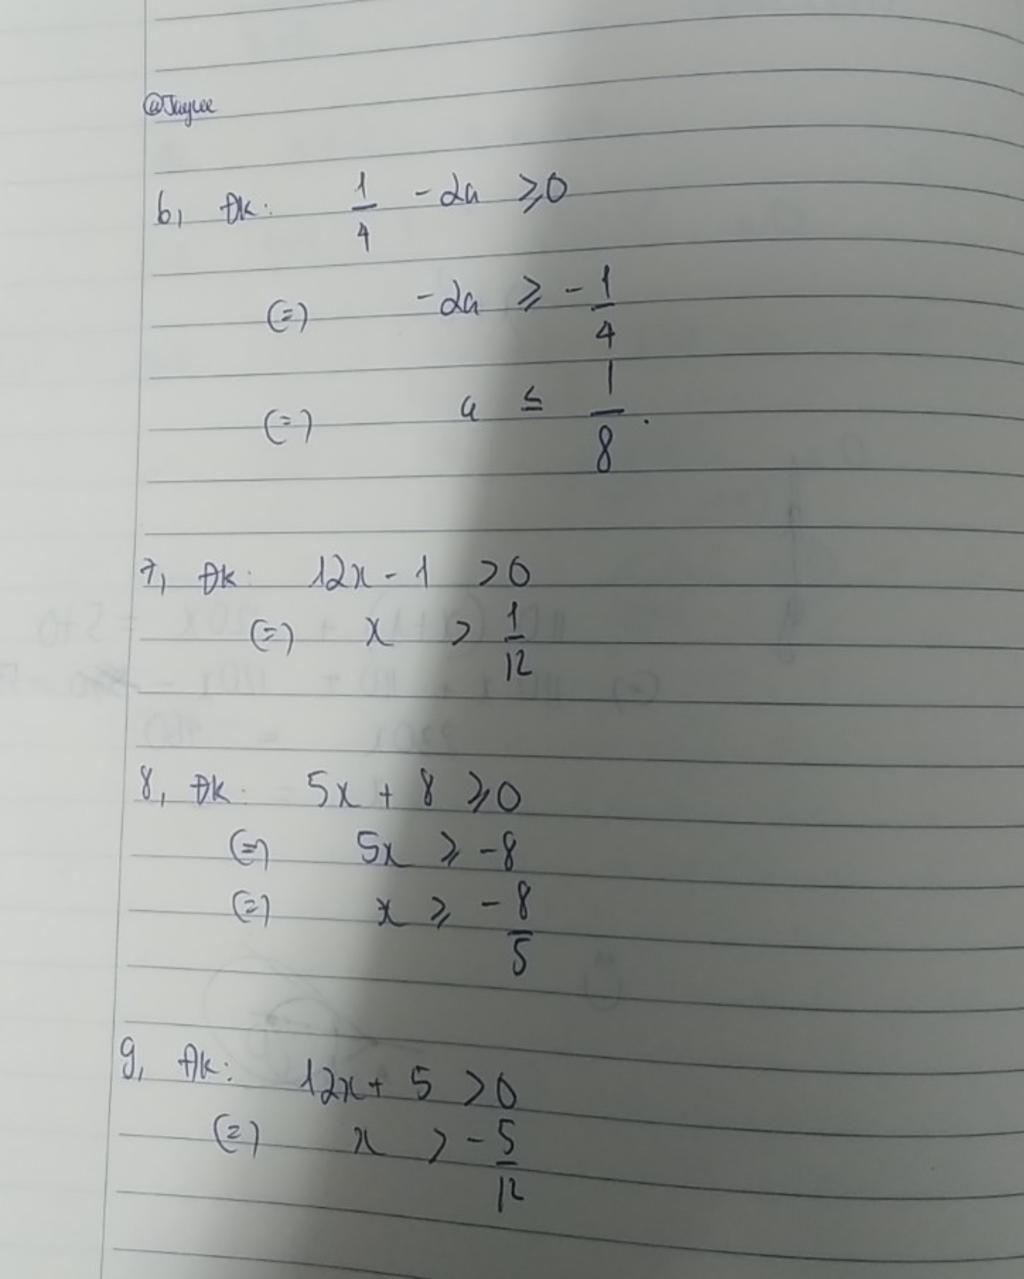 @Jaycee
6, Đk: 1/4 - 2a ⩾ 0
(=) -2a ⩾ -1/4
(=) a ≤ 1/8.
7, Đk: 12x - 1 > 0
(=) x > 1/12
8, Đk: 5x + 8 ⩾ 0
(=) 5x ⩾ -8
(=) x ⩾ -8/5
9, Đk: 12x + 5 > 0
(=) x > -5/12